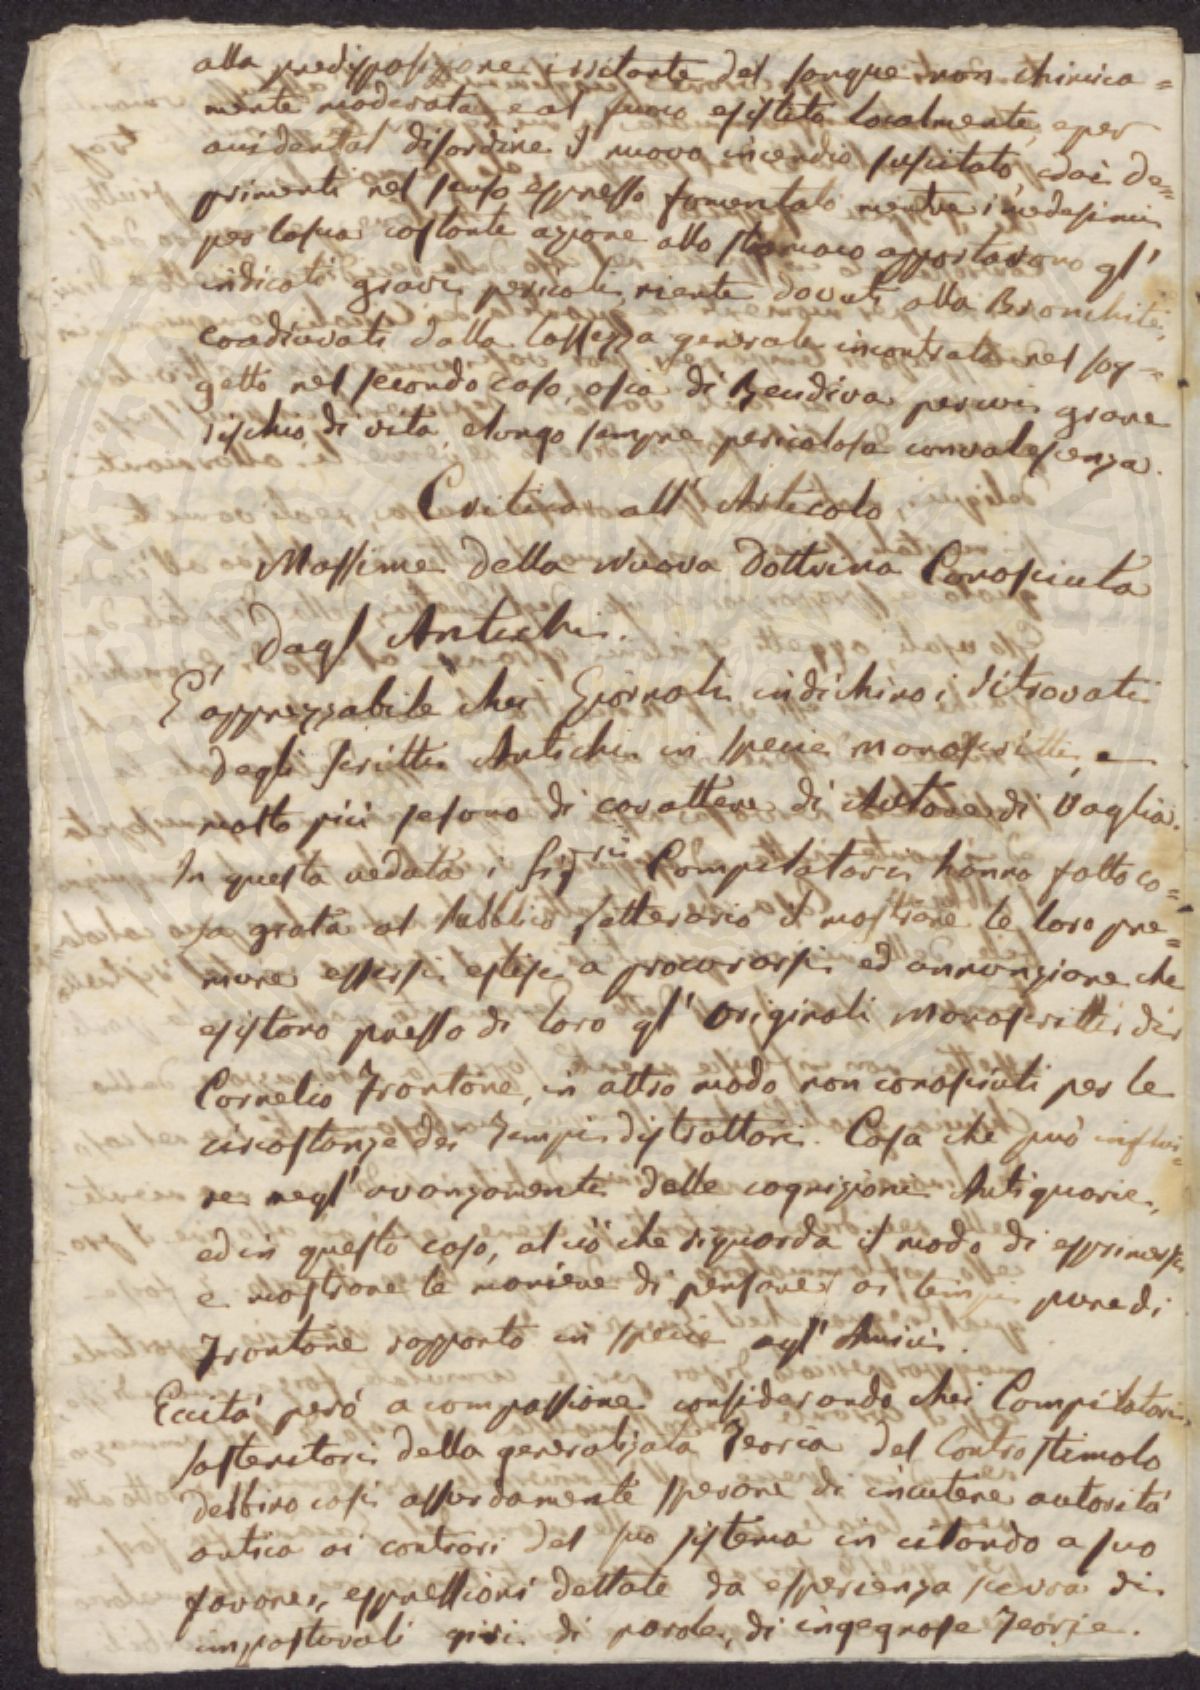 alla predisposizione irritante del sangue non chimica=
mente moderata, e al fuoco esistito localmente, e per
accidental disordine il nuovo incendio suscitato, e dai de=
primenti nel senso espresso fomentato mentre i medesimi
per la sua costante azione allo stomaco apportarono gl'
indicati gravi pericoli niente dovuti alla Bronchite,
coadiuvati dalla lassezza generale incontrata nel sog=
getto nel secondo caso, o sia di Recidiva per cui grave
rischio di vita, e lungo sempre pericolosa convalescenza.
Critica all' Articolo
Massime della Nuova Dottrina Conosciuta
dagl' Antichi.
E' apprezzabile che i Giornali indichino i ritrovati
degli scritti Antichi in specie Manoscritti, e
molto più se sono di carattere di Autore di Vaglia.
In questa veduta i Sig.ri Compilatori hanno fatto co=
sa grata al Pubblico Letterario il mostrare le loro pre=
mure essersi estese a procurarsi ed annunziare che
esistono presso di loro gl' originali Manoscritti di
Cornelio Frontone, in altro modo non conosciuti per le
circostanze dei Tempi distruttori. Cosa che può influi=
re negl' avanzamenti delle cognizioni Antiquarie,
ed in questo caso, al ciò che riguarda il modo di esprimersi
e mostrare le maniere di pensare ai tempi pure di
Frontone rapporto in specie agl' Amici.
Eccita però a compassione considerando che i Compilatori
sostenitori della generalizata Teoria del Controstimolo
debbino così assurdamente sperare di incutere autorità
antica ai contrari del suo sistema in citando a suo
favore, espressioni dettate da esperienza scevra di
impasturali giri di parole, di ingegnose Teorie.